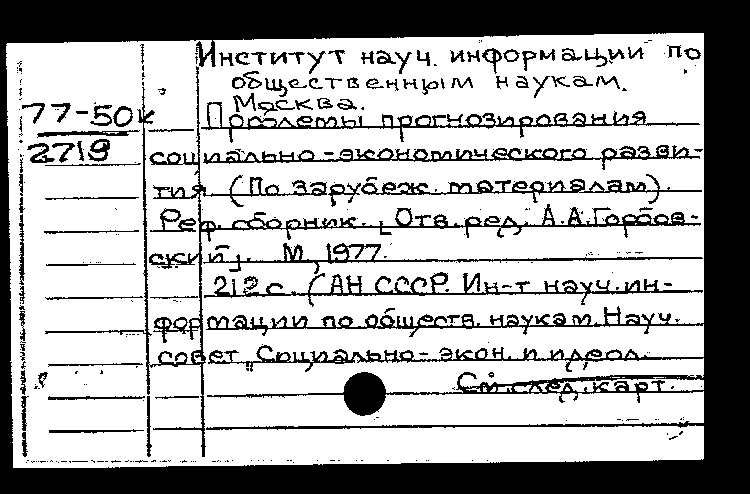 Институт науч. информации по
общественным наукам.
Москва.
77-50к
2719
Проблемы прогнозирования
социально-экономического разви-
тия (По зарубеж. материалам).
Реф. сборник. [Отв. ред. А.А.Горбов-
ский]. М., 1977.
212 с. (АН СССР. Ин-т науч. ин-
формации по обществ. наукам. Науч.
совет „Социально-экон. и идеол.
См. след. карт.